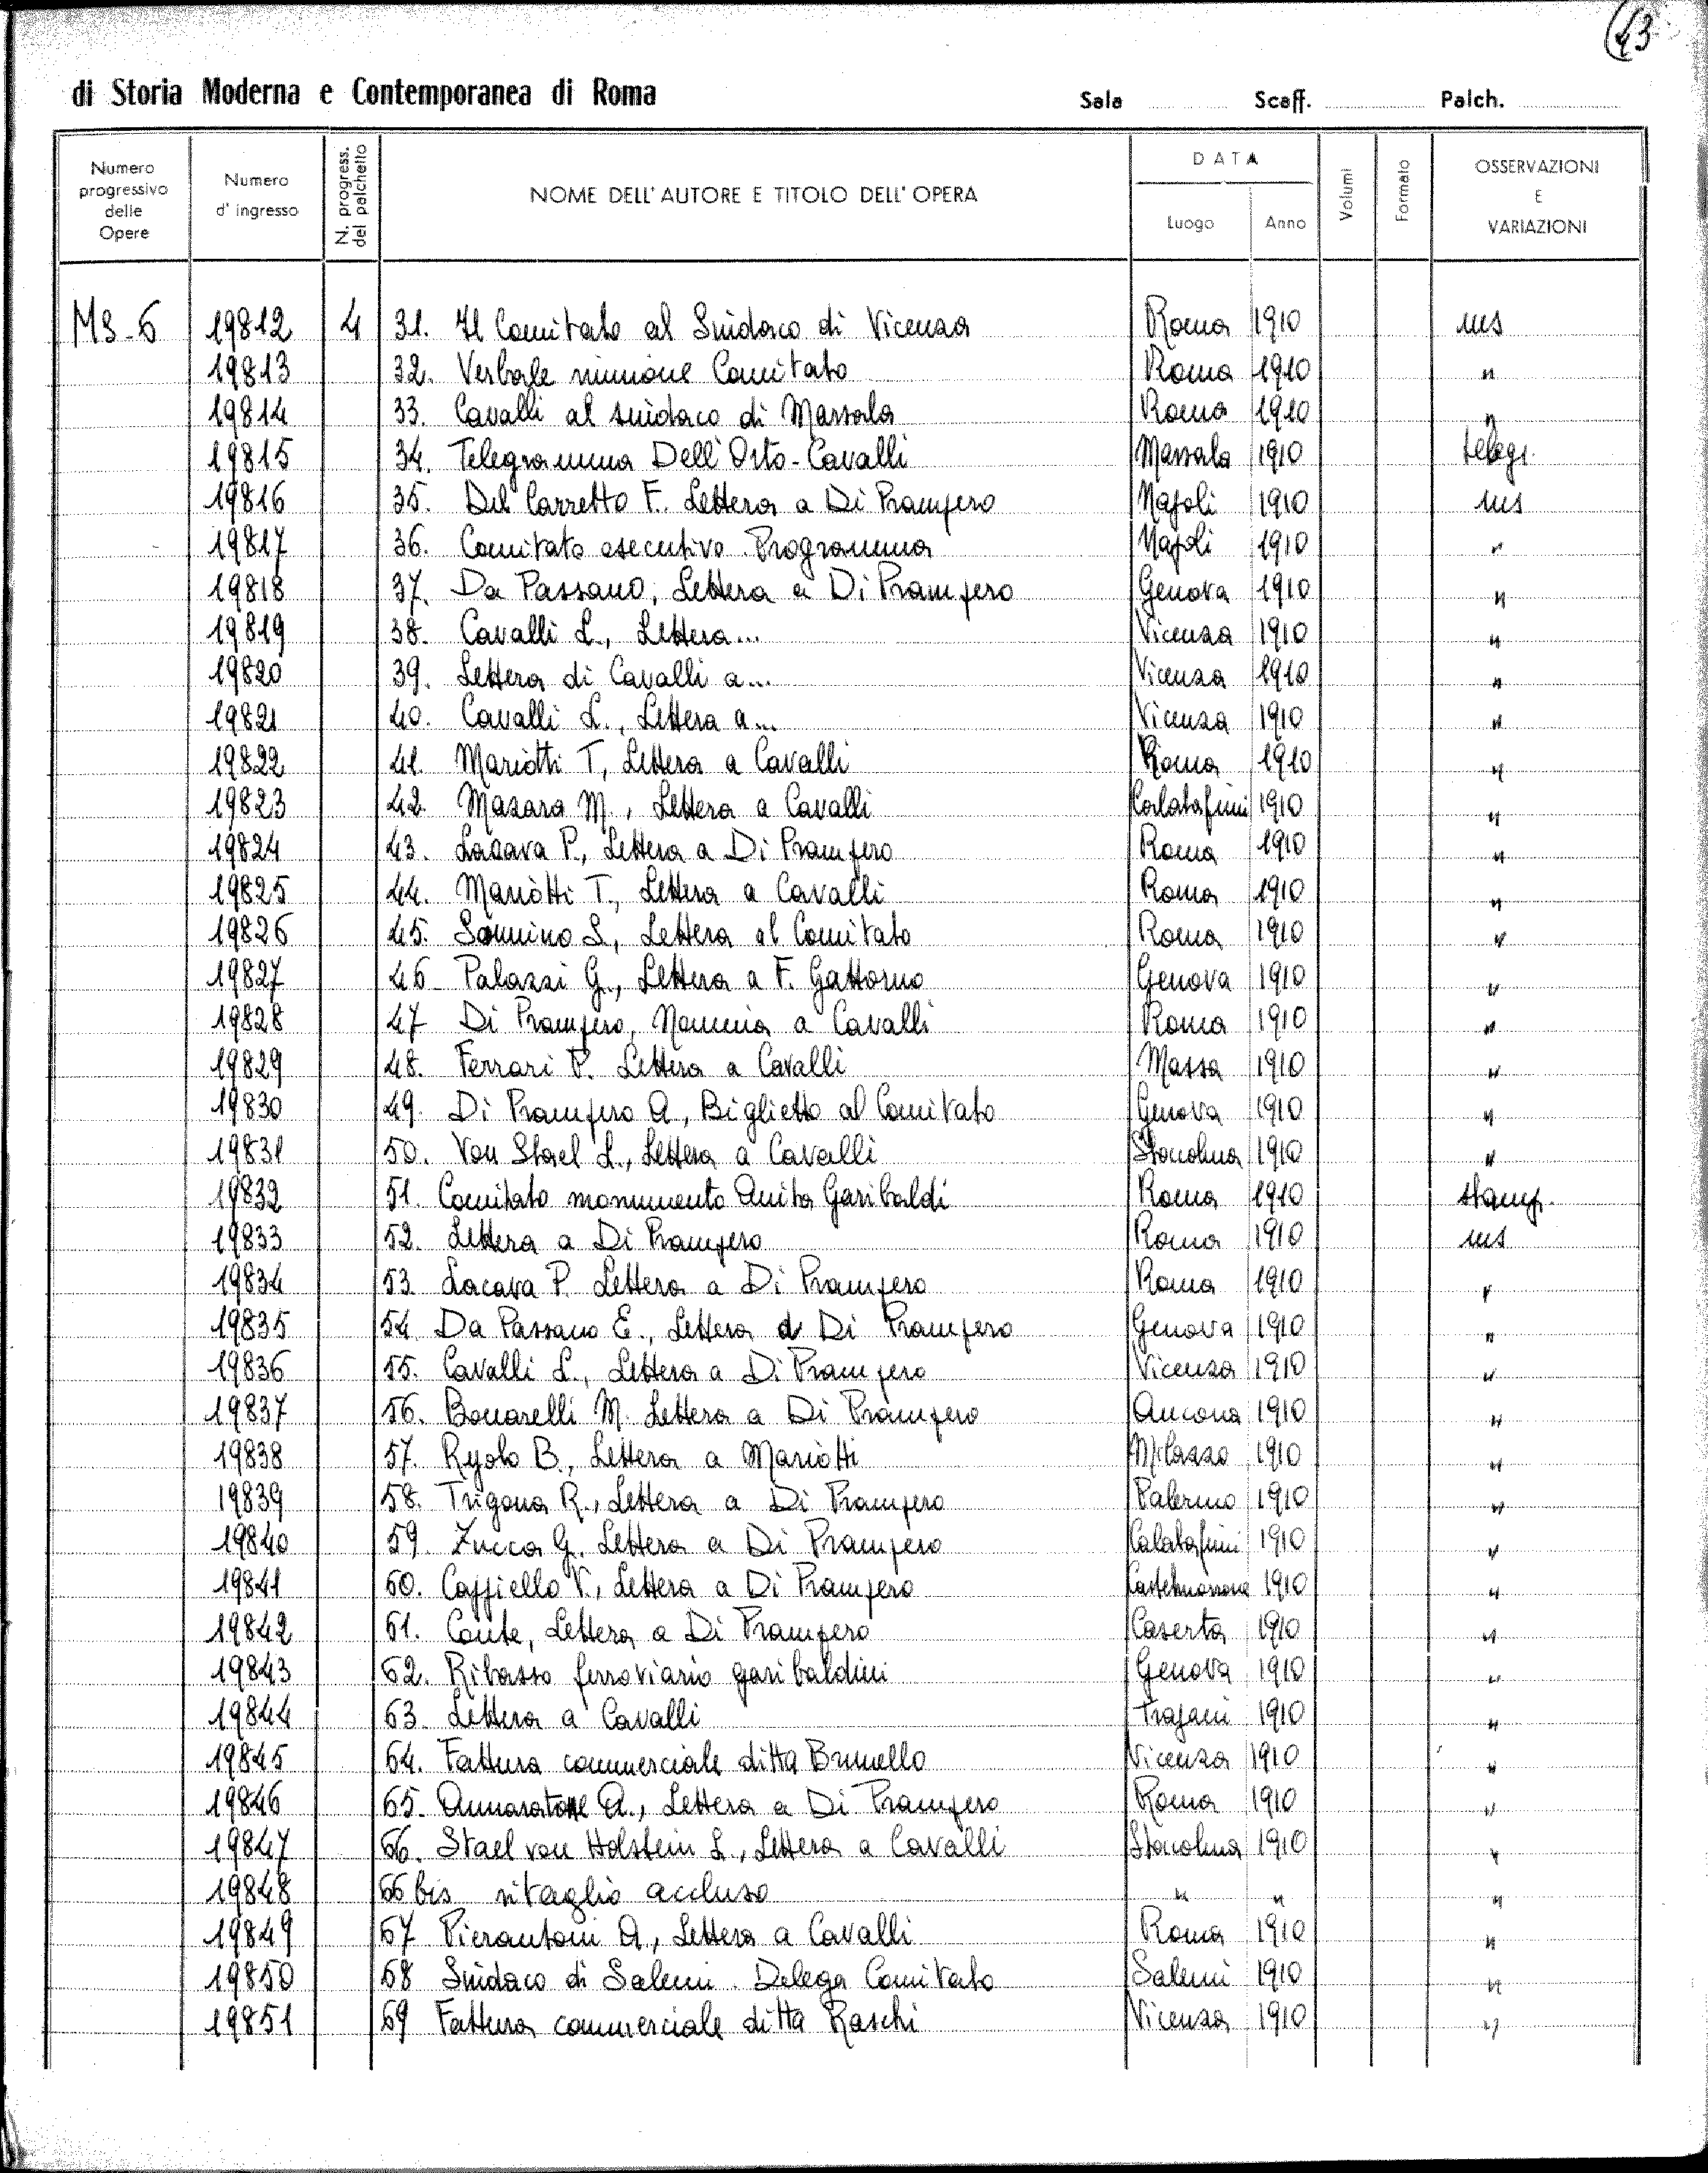 43
di Storia Moderna e Contemporanea di Roma Sala Scaff. Palch.
Numero progressivo delle Opere Numero d'ingresso N. progress. del palchetto NOME DELL'AUTORE E TITOLO DELL'OPERA DATA Luogo Anno Volumi Formato OSSERVAZIONI E VARIAZIONI
MS-6 19812 4 31. Il Comitato al Sindaco di Vicenza Roma 1910 ms
19813 32. Verbale riunione Comitato Roma 1910 "
19814 33. Cavalli al sindaco di Marsala Roma 1910 "
19815 34. Telegramma Dell'Orto-Cavalli Marsala 1910 telegr.
19816 35. Del Carretto F. Lettera a Di Prampero Napoli 1910 ms
19817 36. Comitato esecutivo. Programma Napoli 1910 "
19818 37. Da Passano, Lettera a Di Prampero Genova 1910 "
19819 38. Cavalli L., Lettera... Vicenza 1910 "
19820 39. Lettera di Cavalli a... Vicenza 1910 "
19821 40. Cavalli L., Lettera a... Vicenza 1910 "
19822 41. Mariotti T, Lettera a Cavalli Roma 1910 "
19823 42. Mazara M., Lettera a Cavalli Calatafimi 1910 "
19824 43. Lacava P., Lettera a Di Prampero Roma 1910 "
19825 44. Mariotti T., Lettera a Cavalli Roma 1910 "
19826 45. Sonnino S., Lettera al Comitato Roma 1910 "
19827 46 Palazzi G., Lettera a F. Gattorno Genova 1910 "
19828 47 Di Prampero, Nomina a Cavalli Roma 1910 "
19829 48. Ferrari P. Lettera a Cavalli Massa 1910 "
19830 49. Di Prampero A., Biglietto al Comitato Genova 1910 "
19831 50. Von Stael L., Lettera a Cavalli Stoccolma 1910 "
19832 51. Comitato monumento Anita Garibaldi Roma 1910 stamp.
19833 52. Lettera a Di Prampero Roma 1910 ms
19834 53. Lacava P. Lettera a Di Prampero Roma 1910 "
19835 54. Da Passano E., Lettera a Di Prampero Genova 1910 "
19836 55. Cavalli L., Lettera a Di Prampero Vicenza 1910 "
19837 56. Bonarelli M. Lettera a Di Prampero Ancona 1910 "
19838 57. Ryolo B., Lettera a Mariotti Milazzo 1910 "
19839 58. Trigona R., Lettera a Di Prampero Palermo 1910 "
19840 59. Zucca G. Lettera a Di Prampero Calatafimi 1910 "
19841 60. Caffiello V., Lettera a Di Prampero Castelmorrone 1910 "
19842 61. Conte, Lettera a Di Prampero Caserta 1910 "
19843 62. Ribasso ferroviario garibaldini Genova 1910 "
19844 63. Lettera a Cavalli Trapani 1910 "
19845 64. Fattura commerciale ditta Brunello Vicenza 1910 "
19846 65. Annaratone A., Lettera a Di Prampero Roma 1910 "
19847 66. Stael von Holstein L., Lettera a Cavalli Stoccolma 1910 "
19848 66 bis ritaglio accluso " " "
19849 67 Pierantoni A., Lettera a Cavalli Roma 1910 "
19850 68 Sindaco di Salemi. Delega Comitato Salemi 1910 "
19851 69 Fattura commerciale ditta Raschi Vicenza 1910 "